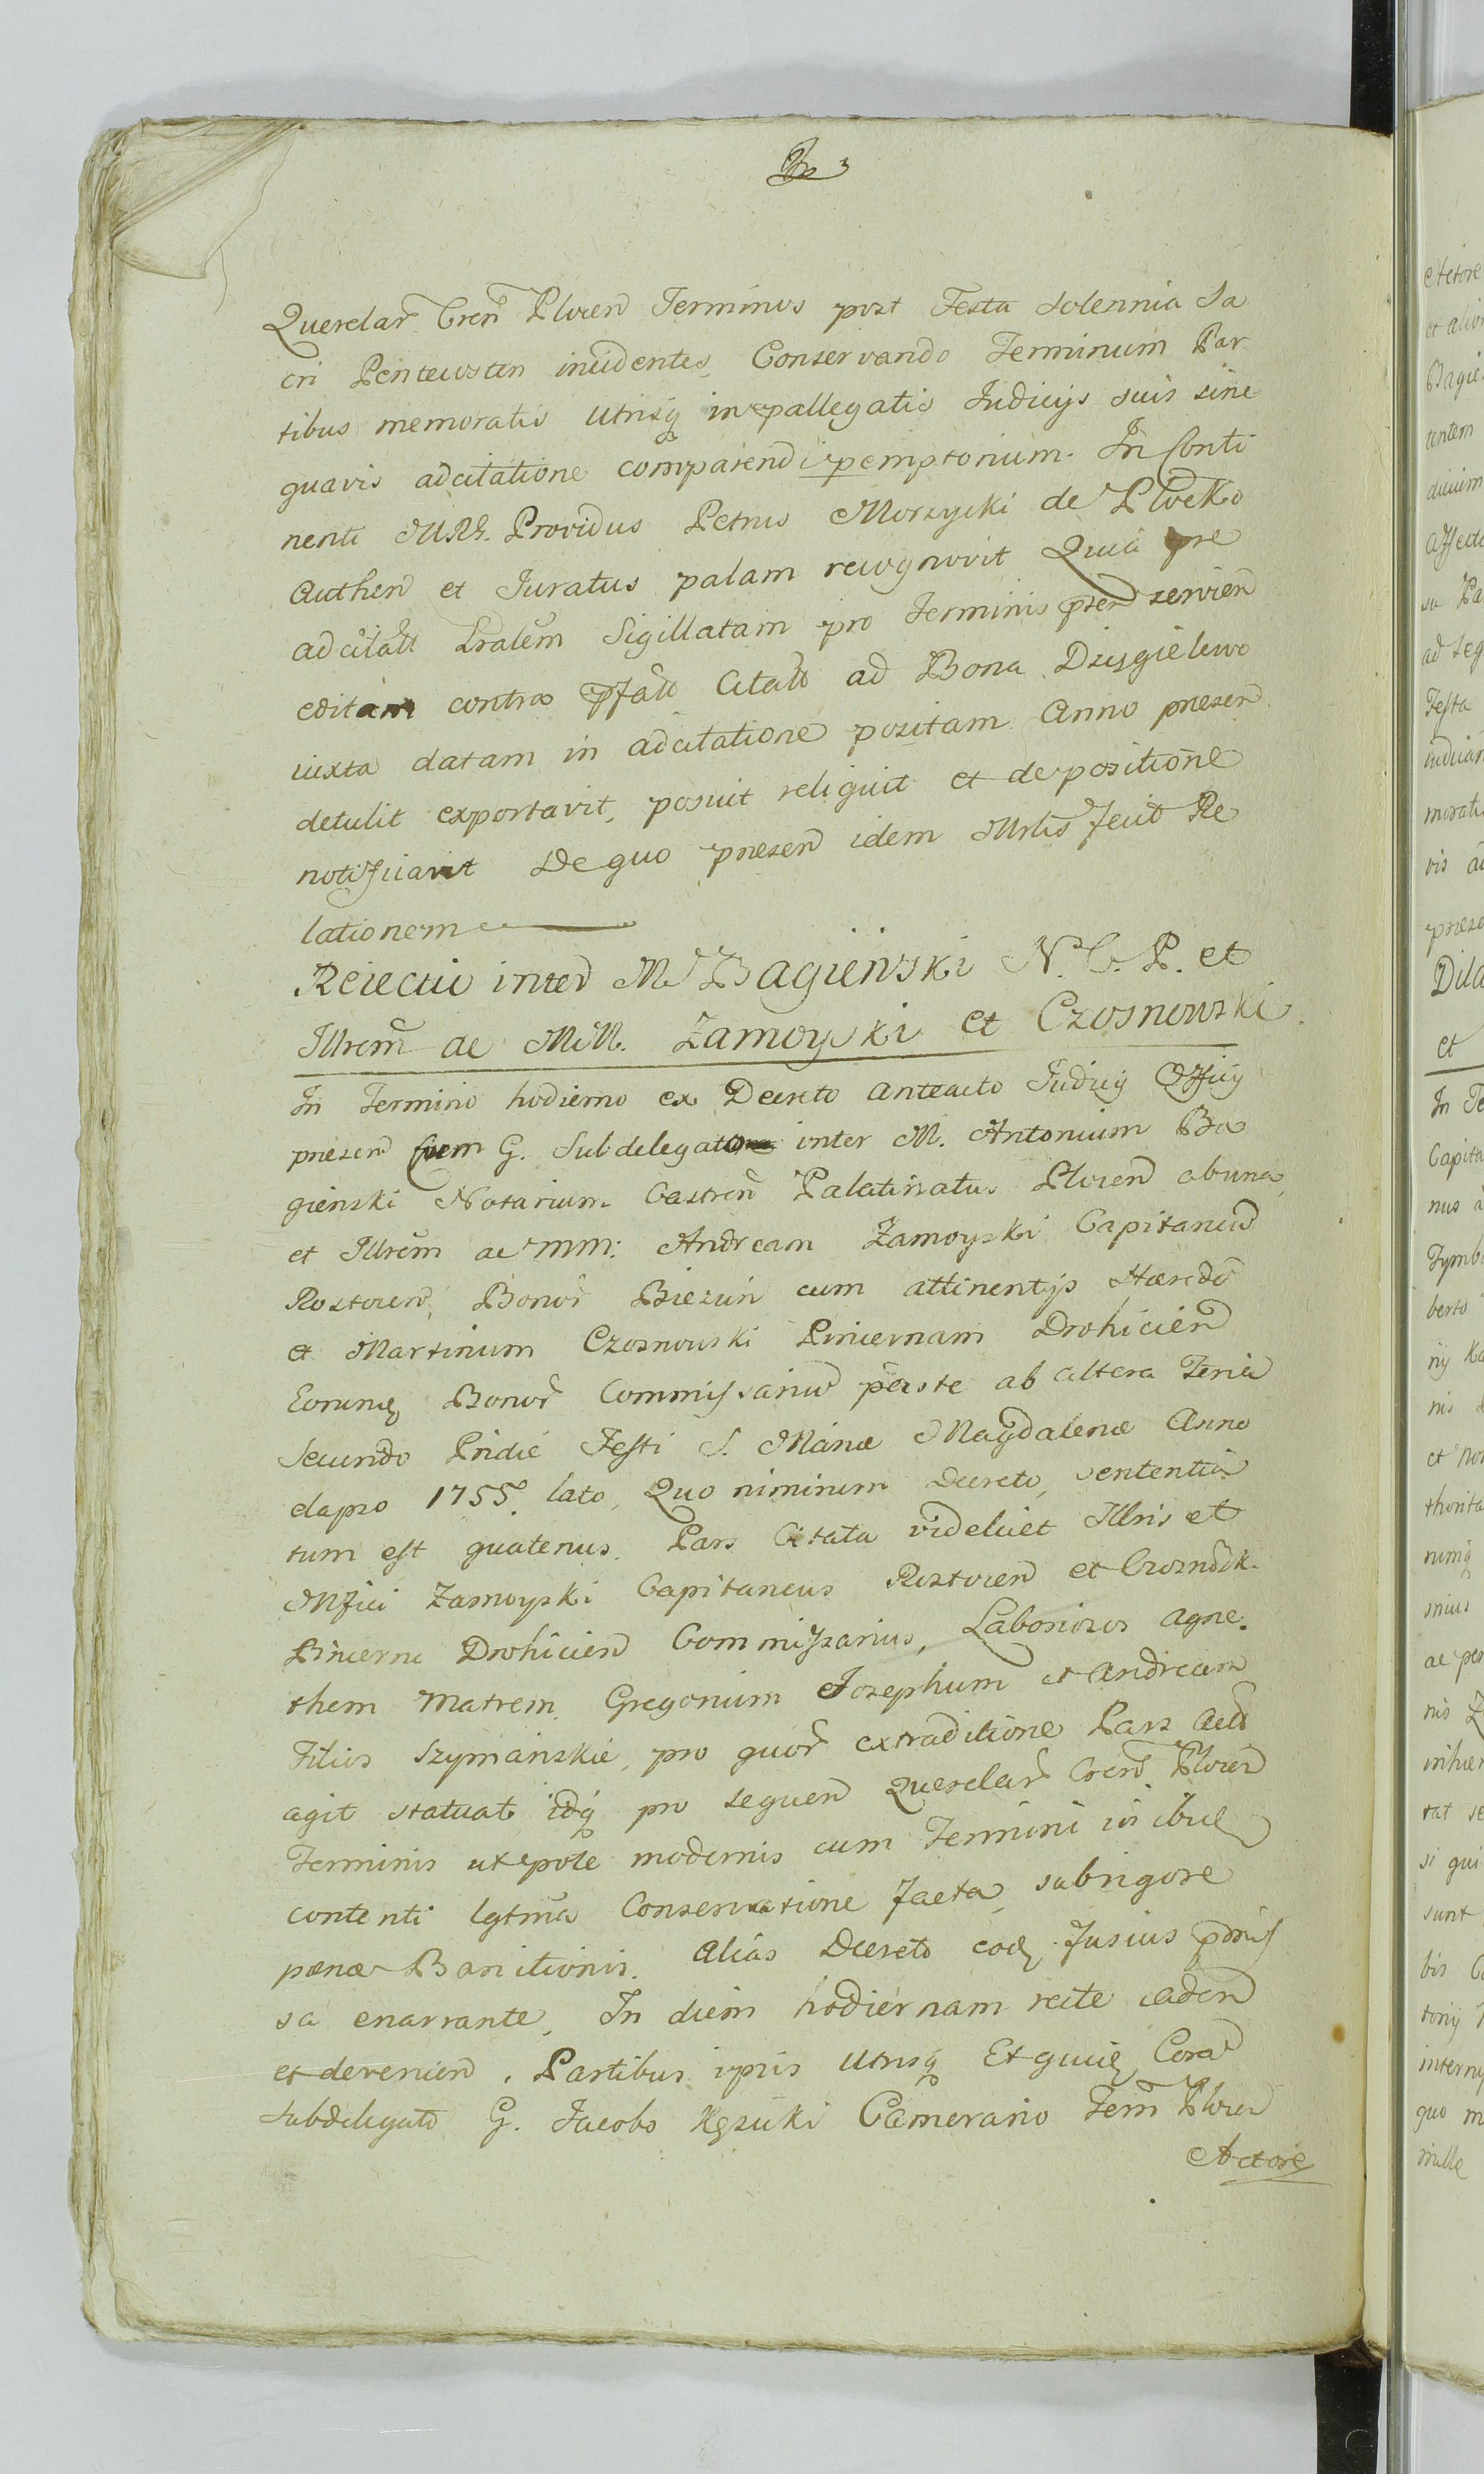 Querelar Cren Plocen Terminos post Festa Solennia Sa
cri Pentecosten incidentes Conservando Terminum Par
tibus memoratis utrisq in epallegatis Iudicijs suis sine
quavis adcitatione comparendi pemptorium. In Conti
nenti MRS. Providus Petrus Morzycki de Plocko
Authen et Iuratus palam recognovit Quia
adcitatt Lralem Sigillatam pro Terminis pren servien
editam contra Pfatt Citatt ad Bona Dzięgielewo
iuxta datam in adcitatione positam Anno presen
detulit exportavit, posuit reliquit et depositione
notificavit De quo presen idem Mrlis fecit Re
lationem
Reiectio inter M Bagieński N. C. P. et
Illrem ac MM. Zamoyski et Czosnowski.
In Termino hodierno ex Decreto anteacto Iudicij Officij
presen G. Subdelegato inter M. Antonium Ba
gienski Notarium Castren Palatinatus Plocen ab una
et Illrem ac MM: Andream Zamoyski Capitaneu
Rostocen, Bonor Biezuń cum attinentijs Haerede
et Martinum Czosnowski Pincernam Drohicien
Eorumq Bonor Commissariu parte ab altera Feria
Secunda Pridie Festi S. Mariæ Magdalenæ Anno
elapso 1755 lato, Quo nimirum Decreto, sententia
tum est quatenus. Pars Citata videlicet Illris et
Mfici Zamoyski Capitaneus Rostocen et Czosnowsk
Pincerna Drohicien Commissarius, Laboriosos Agne.
them Matrem, Gregorium Josephum et Andream
Filios Szymańskie, pro quor extraditione Pars Act
agit statuat idq pro sequen Querelar Cren Plocen
Terminis utepote modernis cum Termini in
contenti lgtma Conservatione facta, sub rigore
pænæ Banitionis. Alias Decreto eod fusius
sa enarrante, In diem hodiernam recte caden
et devenien. Partibus ipsis utrisq Et quid Cora
Subdelegato G. Jacobo Kęsicki Camerario Tem Plocen
Actore